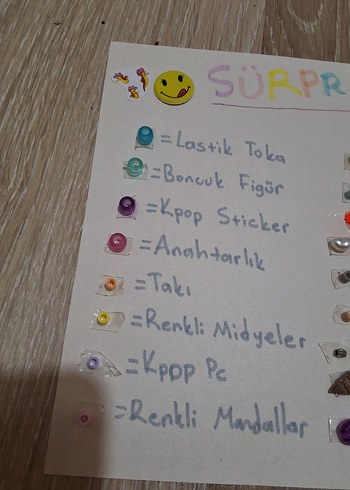 SÜRPR
= Lastik Toka
= Boncuk Figür
= Kpop Sticker
= Anahtarlık
= Takı
= Renkli Midyeler
= Kpop Pc
= Renkli Mandallar